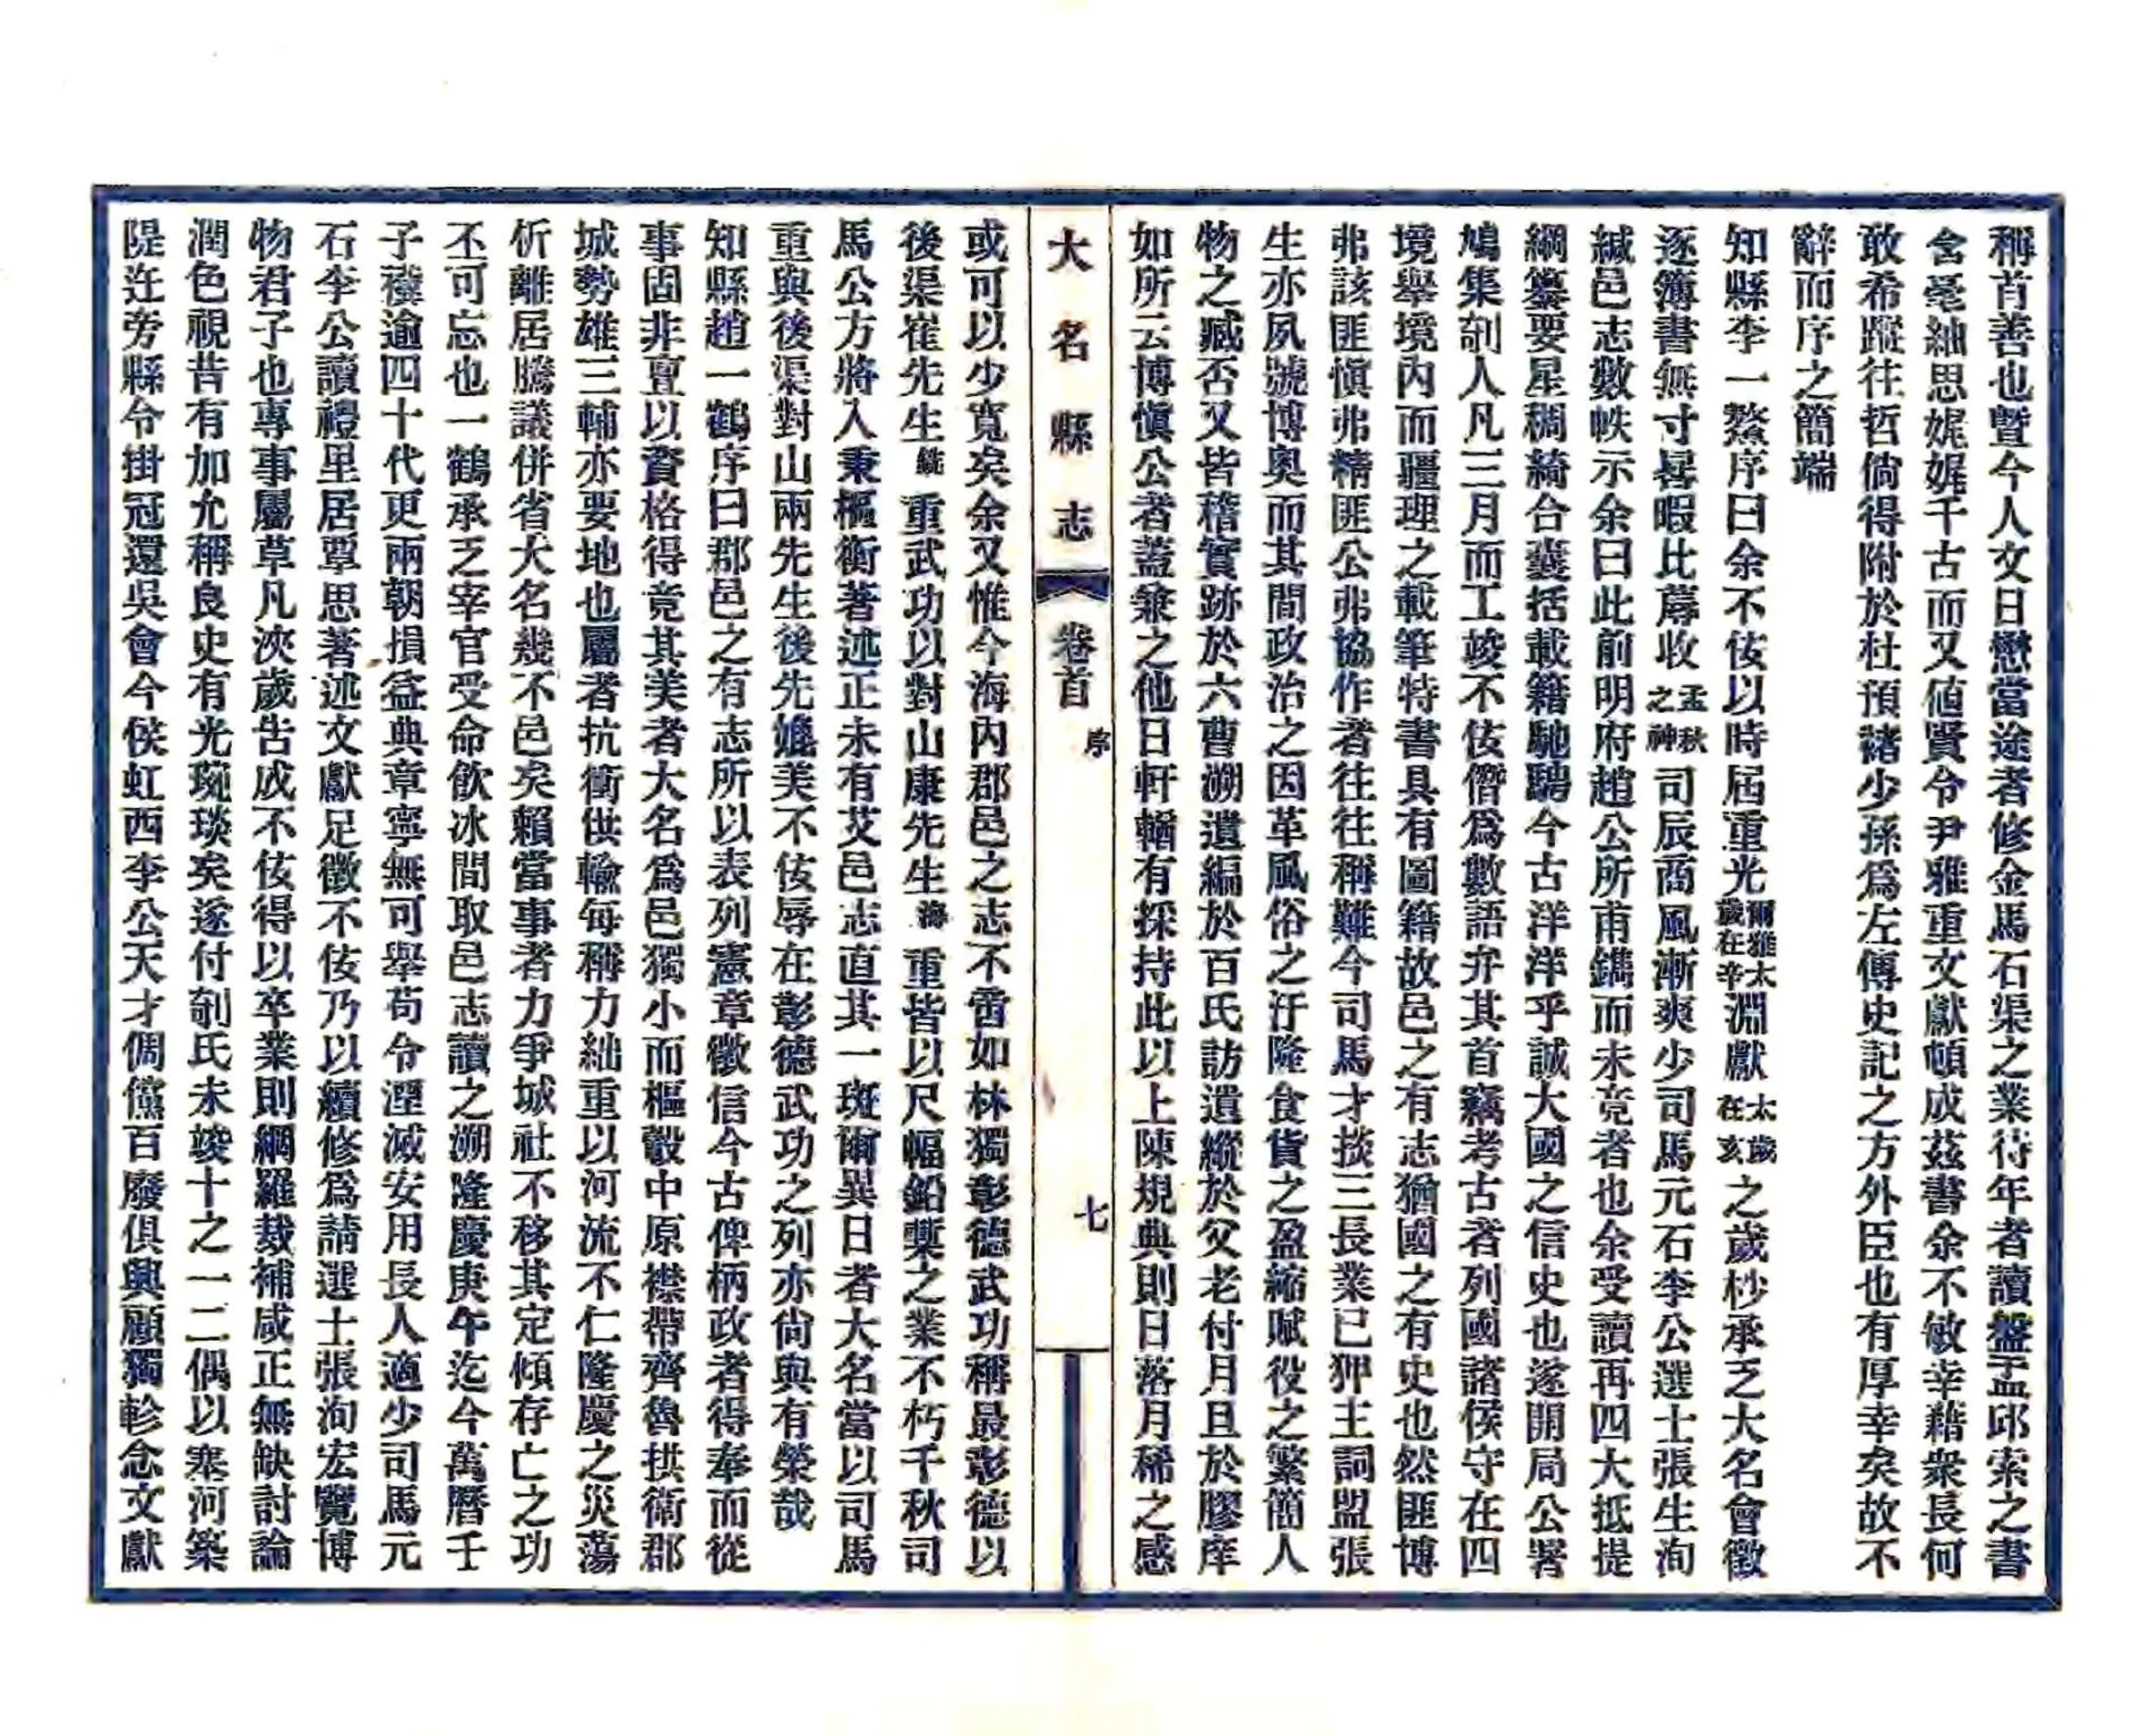 稱首善也曁今人文日懋當途者修金馬石渠之業待年者讀盤盂邱索之書
含毫紬思娓娓千古而又値賢令尹雅重文獻頓成茲書余不敏幸藉衆長何
敢希蹤往哲倘得附於杜預褚少孫爲左傳史記之方外臣也有厚幸矣故不
辭而序之簡端
知縣李一鰲序曰余不佞以時屆重光爾雅太歲在辛淵獻太歲在亥之歲杪承乏大名會徵
逐簿書無寸晷暇比蓐收孟秋之神司辰商風漸爽少司馬元石李公選士張生洵
緘邑志數帙示余曰此前明府趙公所甫鐫而未竟者也余受讀再四大抵提
綱纂要星稠綺合囊括載籍馳騁今古洋洋乎誠大國之信史也遂開局公署
鳩集剞人凡三月而工竣不佞僭爲數語弁其首竊考古者列國諸侯守在四
境舉境內而疆理之載筆特書具有圖籍故邑之有志猶國之有史也然匪博
弗該匪愼弗精匪公弗協作者往往稱難今司馬才掞三長業已狎主詞盟張
生亦夙號博奧而其間政治之因革風俗之汙隆食貨之盈縮賦役之繁簡人
物之臧否又皆稽實跡於六曹溯遺編於百氏訪遺縱於父老付月旦於膠庠
如所云博愼公者蓋兼之他日軒輶有採持此以上陳規典則日落月稀之感
大名縣志 卷首 序 七
或可以少寬矣余又惟今海內郡邑之志不啻如林獨彰德武功稱最彰德以
後渠崔先生銑重武功以對山康先生海重皆以尺幅鉛槧之業不朽千秋司
馬公方將入秉樞衡著述正未有艾邑志直其一斑爾異日者大名當以司馬
重與後渠對山兩先生後先媲美不佞辱在彰德武功之列亦尙與有榮哉
知縣趙一鶴序曰郡邑之有志所以表列憲章徵信今古俾柄政者得奉而從
事固非亶以資格得竟其美者大名爲邑獨小而樞轂中原襟帶齊魯拱衛郡
城勢雄三輔亦要地也屬者抗衝供輸每稱力絀重以河流不仁隆慶之災蕩
析離居騰議併省大名幾不邑矣賴當事者力爭城社不移其定傾存亡之功
不可忘也一鶴承乏宰官受命飮冰間取邑志讀之溯隆慶庚午迄今萬曆壬
子穫逾四十代更兩朝損益典章寧無可舉苟令湮滅安用長人適少司馬元
石李公讀禮里居覃思著述文獻足徵不佞乃以續修爲請選士張洵宏覽博
物君子也專事屬草凡浹歲吿成不佞得以卒業則網羅裁補咸正無缺討論
潤色視昔有加允稱良史有光琬琰矣遂付剞氏未竣十之一二偶以塞河築
隄迕旁縣令掛冠還吳會今侯虹西李公天才倜儻百廢俱興顧獨軫念文獻